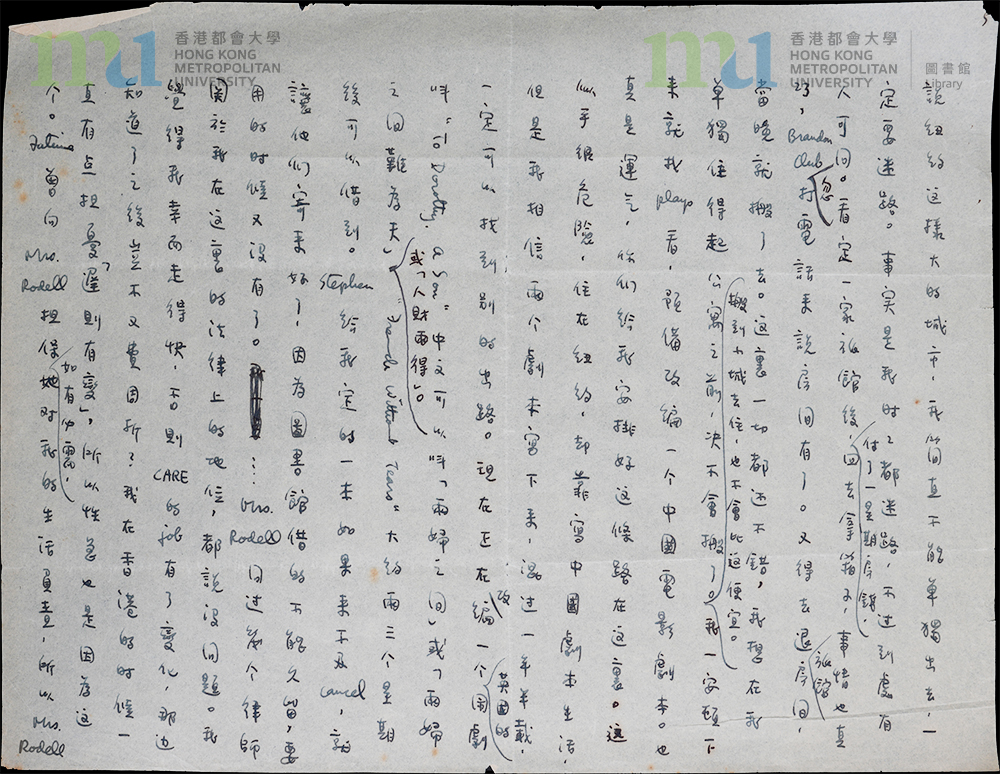 香港都會大學
HONG KONG
METROPOLITAN
UNIVERSITY
香港都會大學
HONG KONG
METROPOLITAN
UNIVERSITY
圖書館
Library
說紐約這樣大的城市,我簡直不能單獨出去,一
定要迷路。事实是我时时都迷路,不过到處有
人可问。看定一家旅館後,付了一星期房錢,回去拿箱子,事情也真
了,Brandon Club忽打電話來說房间有了。又得去退旅館房间,
當晚就搬了去。這裏一切都还不錯,我想在我
單獨住得起公寓之前,决不會搬了。搬到小城去住,也不會比這便宜。我一安頓下
來就找plays看,預備改編一个中國電影劇本。也
真是運气,你們給我安排好這條路在這裏。這
似乎很危險,住在紐約,却靠寫中國劇本生活,
但是我相信兩个劇本寫下來,混过一年半載,
一定可以找到别的出路。現在正在改編一个英國的闹劇
叫"To Dorothy, a Son"中文可以叫「兩婦之间」或「兩婦
之间難為夫」或「人財兩得」。"French Without Tears"大約兩三个星期
後可以借到。Stephen給我定的一本如果來不及cancel,就
讓他們寄來好了,因為圖書館借的不能久留,要
用的时候又没有了。……Mrs. Rodell问过幾个律師
関於我在這裏的法律上的地位,都說没问題。我
覺得我幸而走得快,否則CARE的job有了變化,那边
知道了之後豈不又費周折?我在香港的时候一
直有点担憂「遲則有變」,所以性急也是因為這
个。Fatima曾向Mrs. Rodell担保如有必需,她对我的生活負責,所以Mrs. Rodell